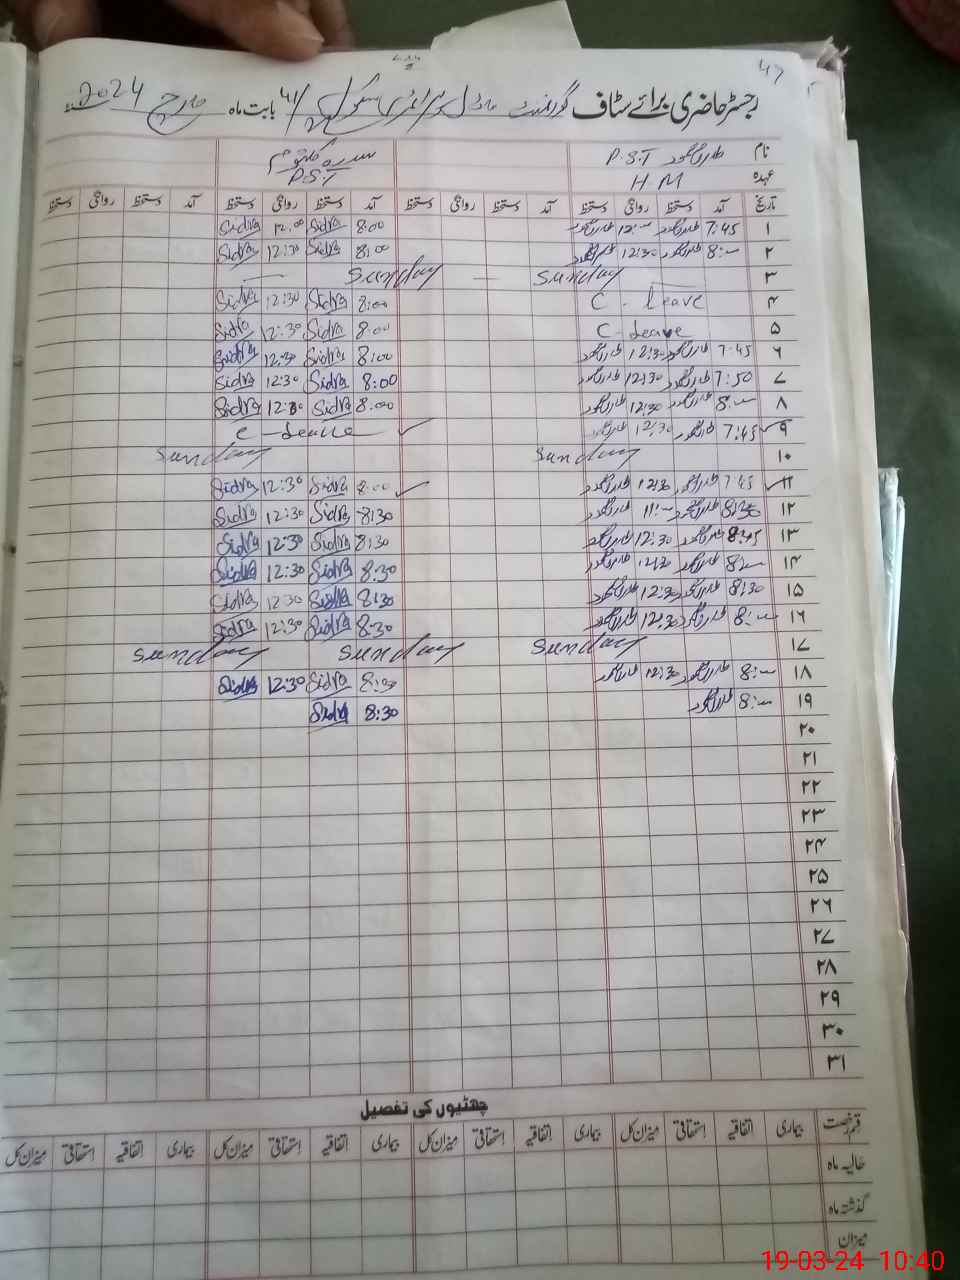 47
رجسٹر حاضری برائے سٹاف گورنمنٹ ماڈل پرائمری سکول بابت ماہ مارچ 2024
نام P.S.T سدرہ کلثوم
عہدہ H M P.S.T
تاریخ آمد دستخط روانگی دستخط آمد دستخط روانگی دستخط آمد دستخط روانگی دستخط آمد دستخط روانگی دستخط
۱ 7:45 12:00 8:00 Sidra 12:00 Sidra
۲ 8:00 12:30 8:00 Sidra 12:30 Sidra
۳ Sunday — Sunday —
۴ C - Leave 8:00 Sidra 12:30 Sidra
۵ C - Leave 8:00 Sidra 12:30 Sidra
۶ 7:45 12:30 8:00 Sidra 12:30 Sidra
۷ 7:50 12:30 8:00 Sidra 12:30 Sidra
۸ 8:00 12:30 8:00 Sidra 12:30 Sidra
۹ 7:45 12:30 C - Leave
۱۰ Sunday Sunday
۱۱ 7:45 12:30 8:00 Sidra 12:30 Sidra
۱۲ 8:30 11:00 8:30 Sidra 12:30 Sidra
۱۳ 8:45 12:30 8:30 Sidra 12:30 Sidra
۱۴ 8:00 12:30 8:30 Sidra 12:30 Sidra
۱۵ 8:30 12:30 8:30 Sidra 12:30 Sidra
۱۶ 8:00 12:30 8:30 Sidra 12:30 Sidra
۱۷ Sunday Sunday Sunday
۱۸ 8:00 12:30 8:30 Sidra 12:30 Sidra
۱۹ 8:00 8:30 Sidra
۲۰
۲۱
۲۲
۲۳
۲۴
۲۵
۲۶
۲۷
۲۸
۲۹
۳۰
۳۱
چھٹیوں کی تفصیل
قسم رخصت بیماری اتفاقیہ استحقاقی میزان کل بیماری اتفاقیہ استحقاقی میزان کل بیماری اتفاقیہ استحقاقی میزان کل بیماری اتفاقیہ استحقاقی میزان کل
حالیہ ماہ
گذشتہ ماہ
میزان
19-03-24 10:40